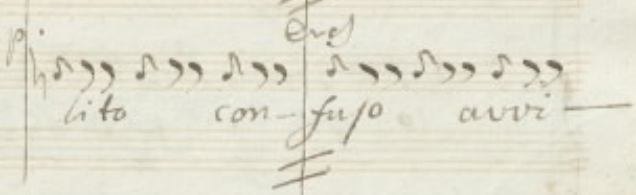 p:
Cres
lito con- fuso avvi